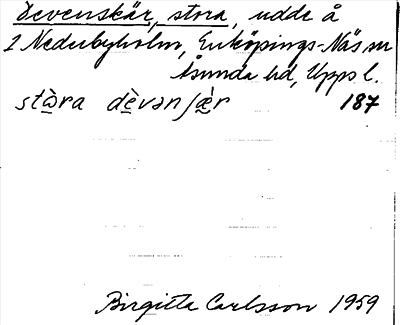 Devenskär, stora, udde å
2 Nederbyholm, Enköpings-Näs sn
Åsunda hd, Upps l.
stòra dèvənʃæ̀r 187
Birgitta Carlsson 1959